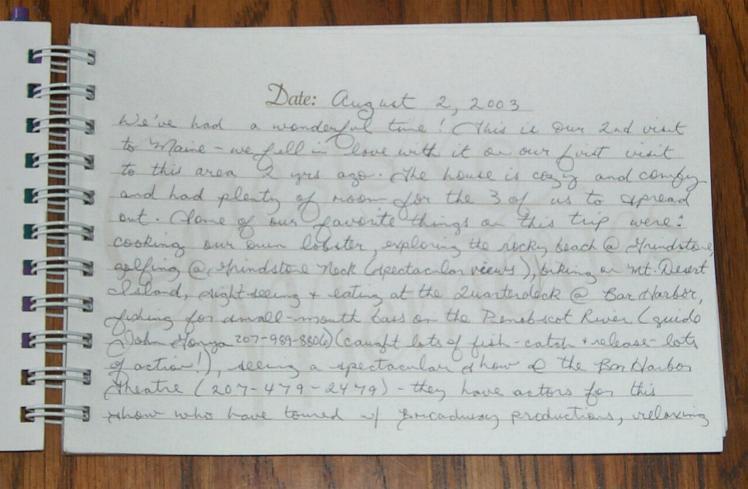 Date: August 2, 2003
We've had a wonderful time! This is our 2nd visit
to Maine - we fell in love with it on our first visit
to this area 2 yrs ago. The house is cozy and comfy
and had plenty of room for the 3 of us to spread
out. Some of our favorite things on this trip were:
cooking our own lobster, exploring the rocky beach @ Grindstone,
golfing @ Grindstone Neck (spectacular views), biking on Mt. Desert
Island, sight-seeing + eating at the Quarterdeck @ Bar Harbor,
fishing for small-mouth bass on the Penobscot River (guide
John 207-989-8806) (caught lots of fish - catch + release - lots
of action!), seeing a spectacular show @ the Bar Harbor
Theatre (207-479-2479) - they have actors for this
show who have toured w/ Broadway productions, relaxing